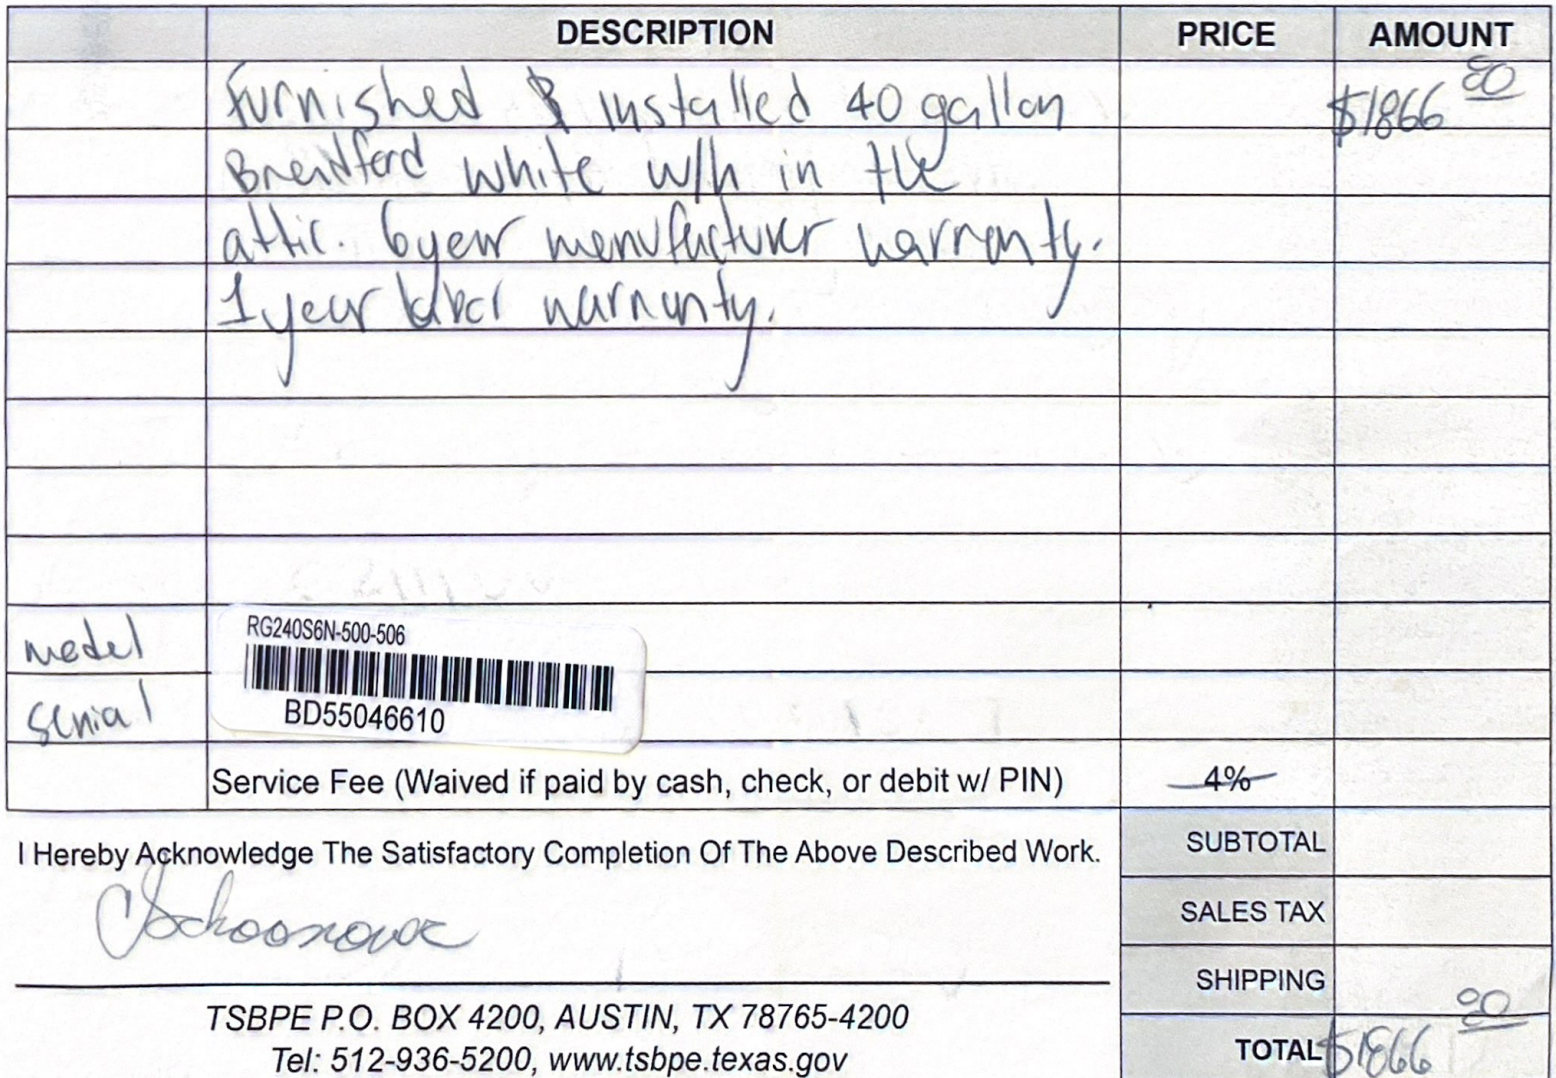 DESCRIPTION PRICE AMOUNT
Furnished & installed 40 gallon $1866 00
Bradford white w/h in the
attic. 6 year manufacturer warranty.
1 year labor warranty.
model RG240S6N-500-506
serial BD55046610
Service Fee (Waived if paid by cash, check, or debit w/ PIN) 4%
I Hereby Acknowledge The Satisfactory Completion Of The Above Described Work.
SUBTOTAL
SALES TAX
SHIPPING
TSBPE P.O. BOX 4200, AUSTIN, TX 78765-4200
Tel: 512-936-5200, www.tsbpe.texas.gov
TOTAL $1866 00